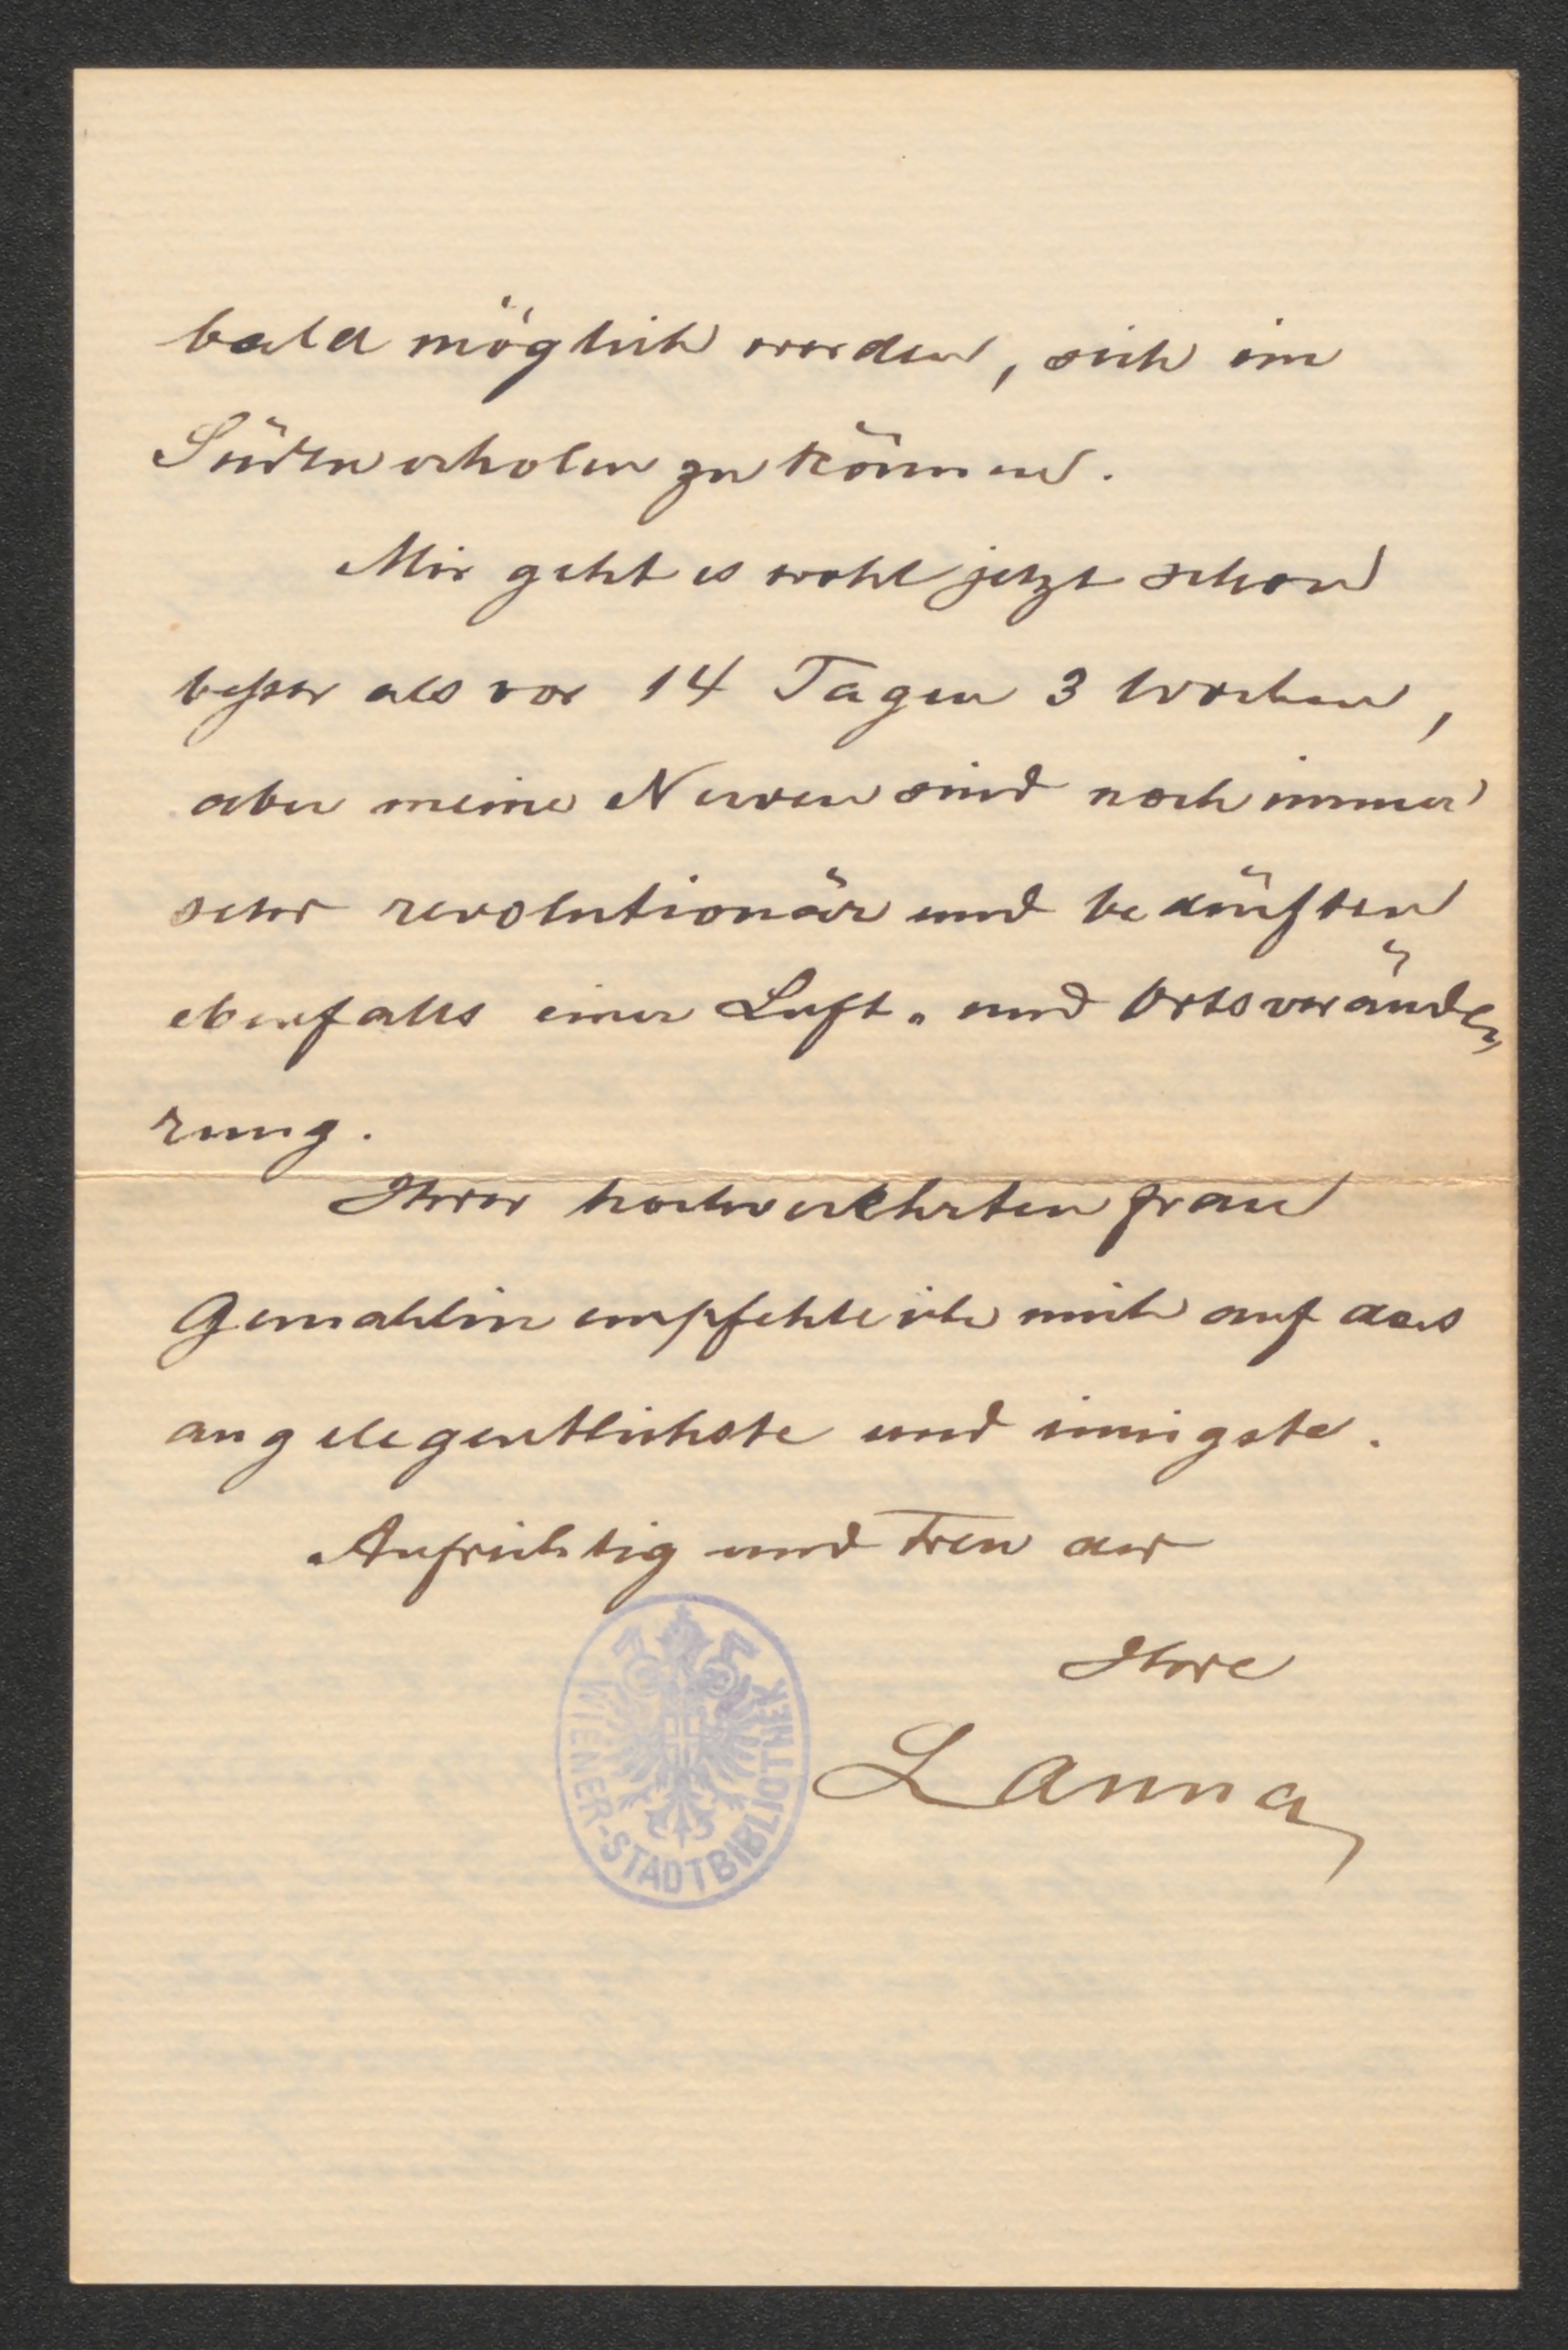 bald möglich werden, sich im
Süden erholen zu können.
Mir geht es wohl jetzt schon
beßer als vor 14 Tagen 3 Wochen,
aber meine Nerven sind noch immer
sehr revolutionär und bedürften
ebenfalls einer Luft- und Ortsverände-
rung.
Ihrer hochverehrten Frau
Gemahlin empfehle ich mich auf das
angelegentlichste und innigste.
Aufrichtig und treu der
Ihre
Lanna
WIENER-STADTBIBLIOTHEK